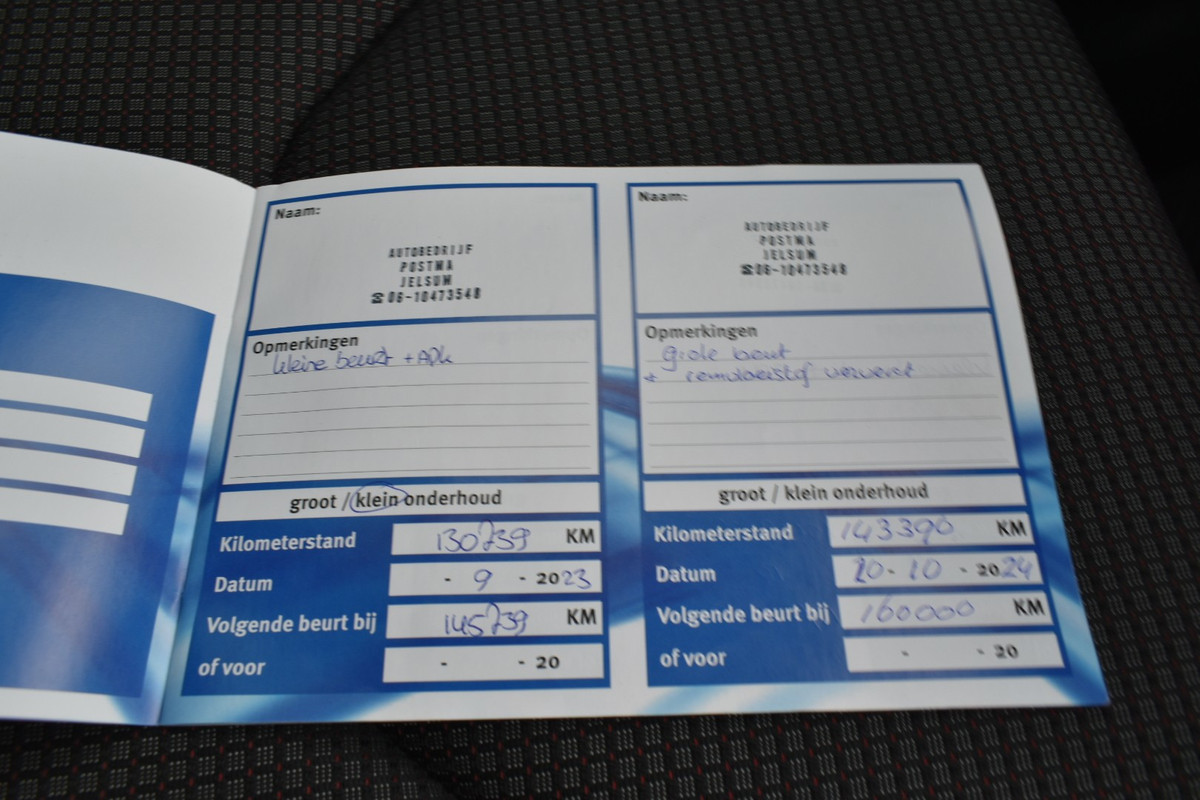 Naam:
AUTOBEDRIJF
POSTMA
JELSUM
☎06-10473548
Opmerkingen
kleine beurt + APK
groot / klein onderhoud
Kilometerstand 130739 KM
Datum - 9 - 2023
Volgende beurt bij 145739 KM
of voor - - 20
Naam:
AUTOBEDRIJF
POSTMA
JELSUM
☎06-10473548
Opmerkingen
grote beurt
+ remvloeistof ververst
groot / klein onderhoud
Kilometerstand 143390 KM
Datum - 10 - 2024
Volgende beurt bij 160000 KM
of voor - - 20